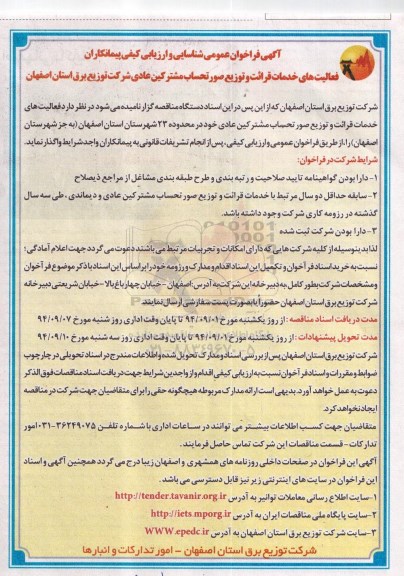 آگهی فراخوان عمومی شناسایی و ارزیابی کیفی پیمانکاران
فعالیت های خدمات قرائت و توزیع صورتحساب مشترکین عادی شرکت توزیع برق استان اصفهان
شرکت توزیع برق استان اصفهان که از این پس در این اسناد دستگاه مناقصه گزار نامیده می شود در نظر دارد فعالیت های
خدمات قرائت و توزیع صورتحساب مشترکین عادی خود در محدوده ۲۳ شهرستان استان اصفهان (به جز شهرستان
اصفهان) را از طریق فراخوان عمومی و ارزیابی کیفی، پس از انجام تشریفات قانونی به پیمانکاران واجد شرایط واگذار نماید.
شرایط شرکت در فراخوان:
۱- دارا بودن گواهینامه تایید صلاحیت و رتبه بندی و طرح طبقه بندی مشاغل از مراجع ذیصلاح
۲- سابقه حداقل دو سال مرتبط با خدمات قرائت و توزیع صورتحساب مشترکین عادی و دیماندی، طی سه سال
گذشته در رزومه کاری شرکت وجود داشته باشد.
۳- دارا بودن شرکت ثبت شده
لذا بدینوسیله از کلیه شرکت هایی که دارای امکانات و تجربیات مرتبط می باشند دعوت می گردد جهت اعلام آمادگی؛
نسبت به خرید اسناد فراخوان و تکمیل این اسناد اقدام و مدارک و رزومه خود را بر اساس این اسناد با ذکر موضوع فراخوان
و مشخصات شرکت بطور کامل به دبیرخانه این شرکت به آدرس: اصفهان - خیابان چهارباغ بالا - خیابان شریعتی دبیرخانه
شرکت توزیع برق استان اصفهان حضوراً یا بصورت پست سفارشی ارسال نمایند.
مدت دریافت اسناد مناقصه: از روز یکشنبه مورخ ۹۴/۰۹/۰۱ تا پایان وقت اداری روز شنبه مورخ ۹۴/۰۹/۰۷
مدت تحویل پیشنهادات: از روز یکشنبه مورخ ۹۴/۰۹/۰۱ تا پایان وقت اداری روز سه شنبه مورخ ۹۴/۰۹/۱۰
شرکت توزیع برق استان اصفهان پس از بررسی اسناد و مدارک تحویل شده و اطلاعات مندرج در اسناد تحویلی در چارچوب
ضوابط و مقررات و اسناد فراخوان نسبت به ارزیابی کیفی اقدام و از واجدین شرایط جهت دریافت اسناد مناقصات فوق الذکر
دعوت به عمل خواهد آورد. بدیهی است ارائه مدارک مربوطه هیچگونه حقی را برای متقاضیان جهت شرکت در مناقصه
ایجاد نخواهد کرد.
متقاضیان جهت کسب اطلاعات بیشتر می توانند در ساعات اداری با شماره تلفن ۳۶۲۴۹۰۷۵-۰۳۱ امور
تدارکات - قسمت مناقصات این شرکت تماس حاصل فرمایند.
آگهی این فراخوان در صفحات داخلی روزنامه های همشهری و اصفهان زیبا درج می گردد همچنین آگهی و اسناد
این فراخوان در سایت های اینترنتی زیر نیز قابل دسترسی می باشد.
۱- سایت اطلاع رسانی معاملات توانیر به آدرس http://tender.tavanir.org.ir
۲- سایت پایگاه ملی مناقصات ایران به آدرس http://iets.mporg.ir
۳- سایت شرکت توزیع برق استان اصفهان به آدرس WWW.epedc.ir
شرکت توزیع برق استان اصفهان - امور تدارکات و انبارها